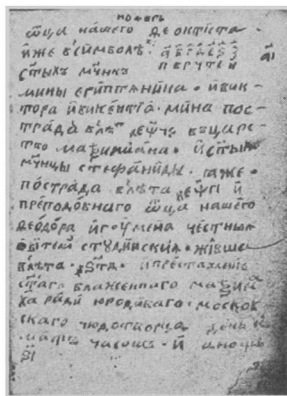 ноѧбрь
ѿца нашего Ѳеоктиста
иже в
ст҃ыхъ мч҃нкъ
мины египтѧнина · и вик-
тора и викентїа · мина пос-
трада в въ царс-
тво маѯимїана · и ст҃ыѧ
мч҃нцы стефаниды · таже
пострада в лѣта и
преподобнаго ѿца нашего
Ѳеодора игумена честныѧ
студийскиѧ · живше
в лѣта · и преставленїе
ст҃аго блаженнаго маѯима
ха ради юродиваго · москов
скаго чюдотворца день
часовъ · а нощь
ѕ҃і